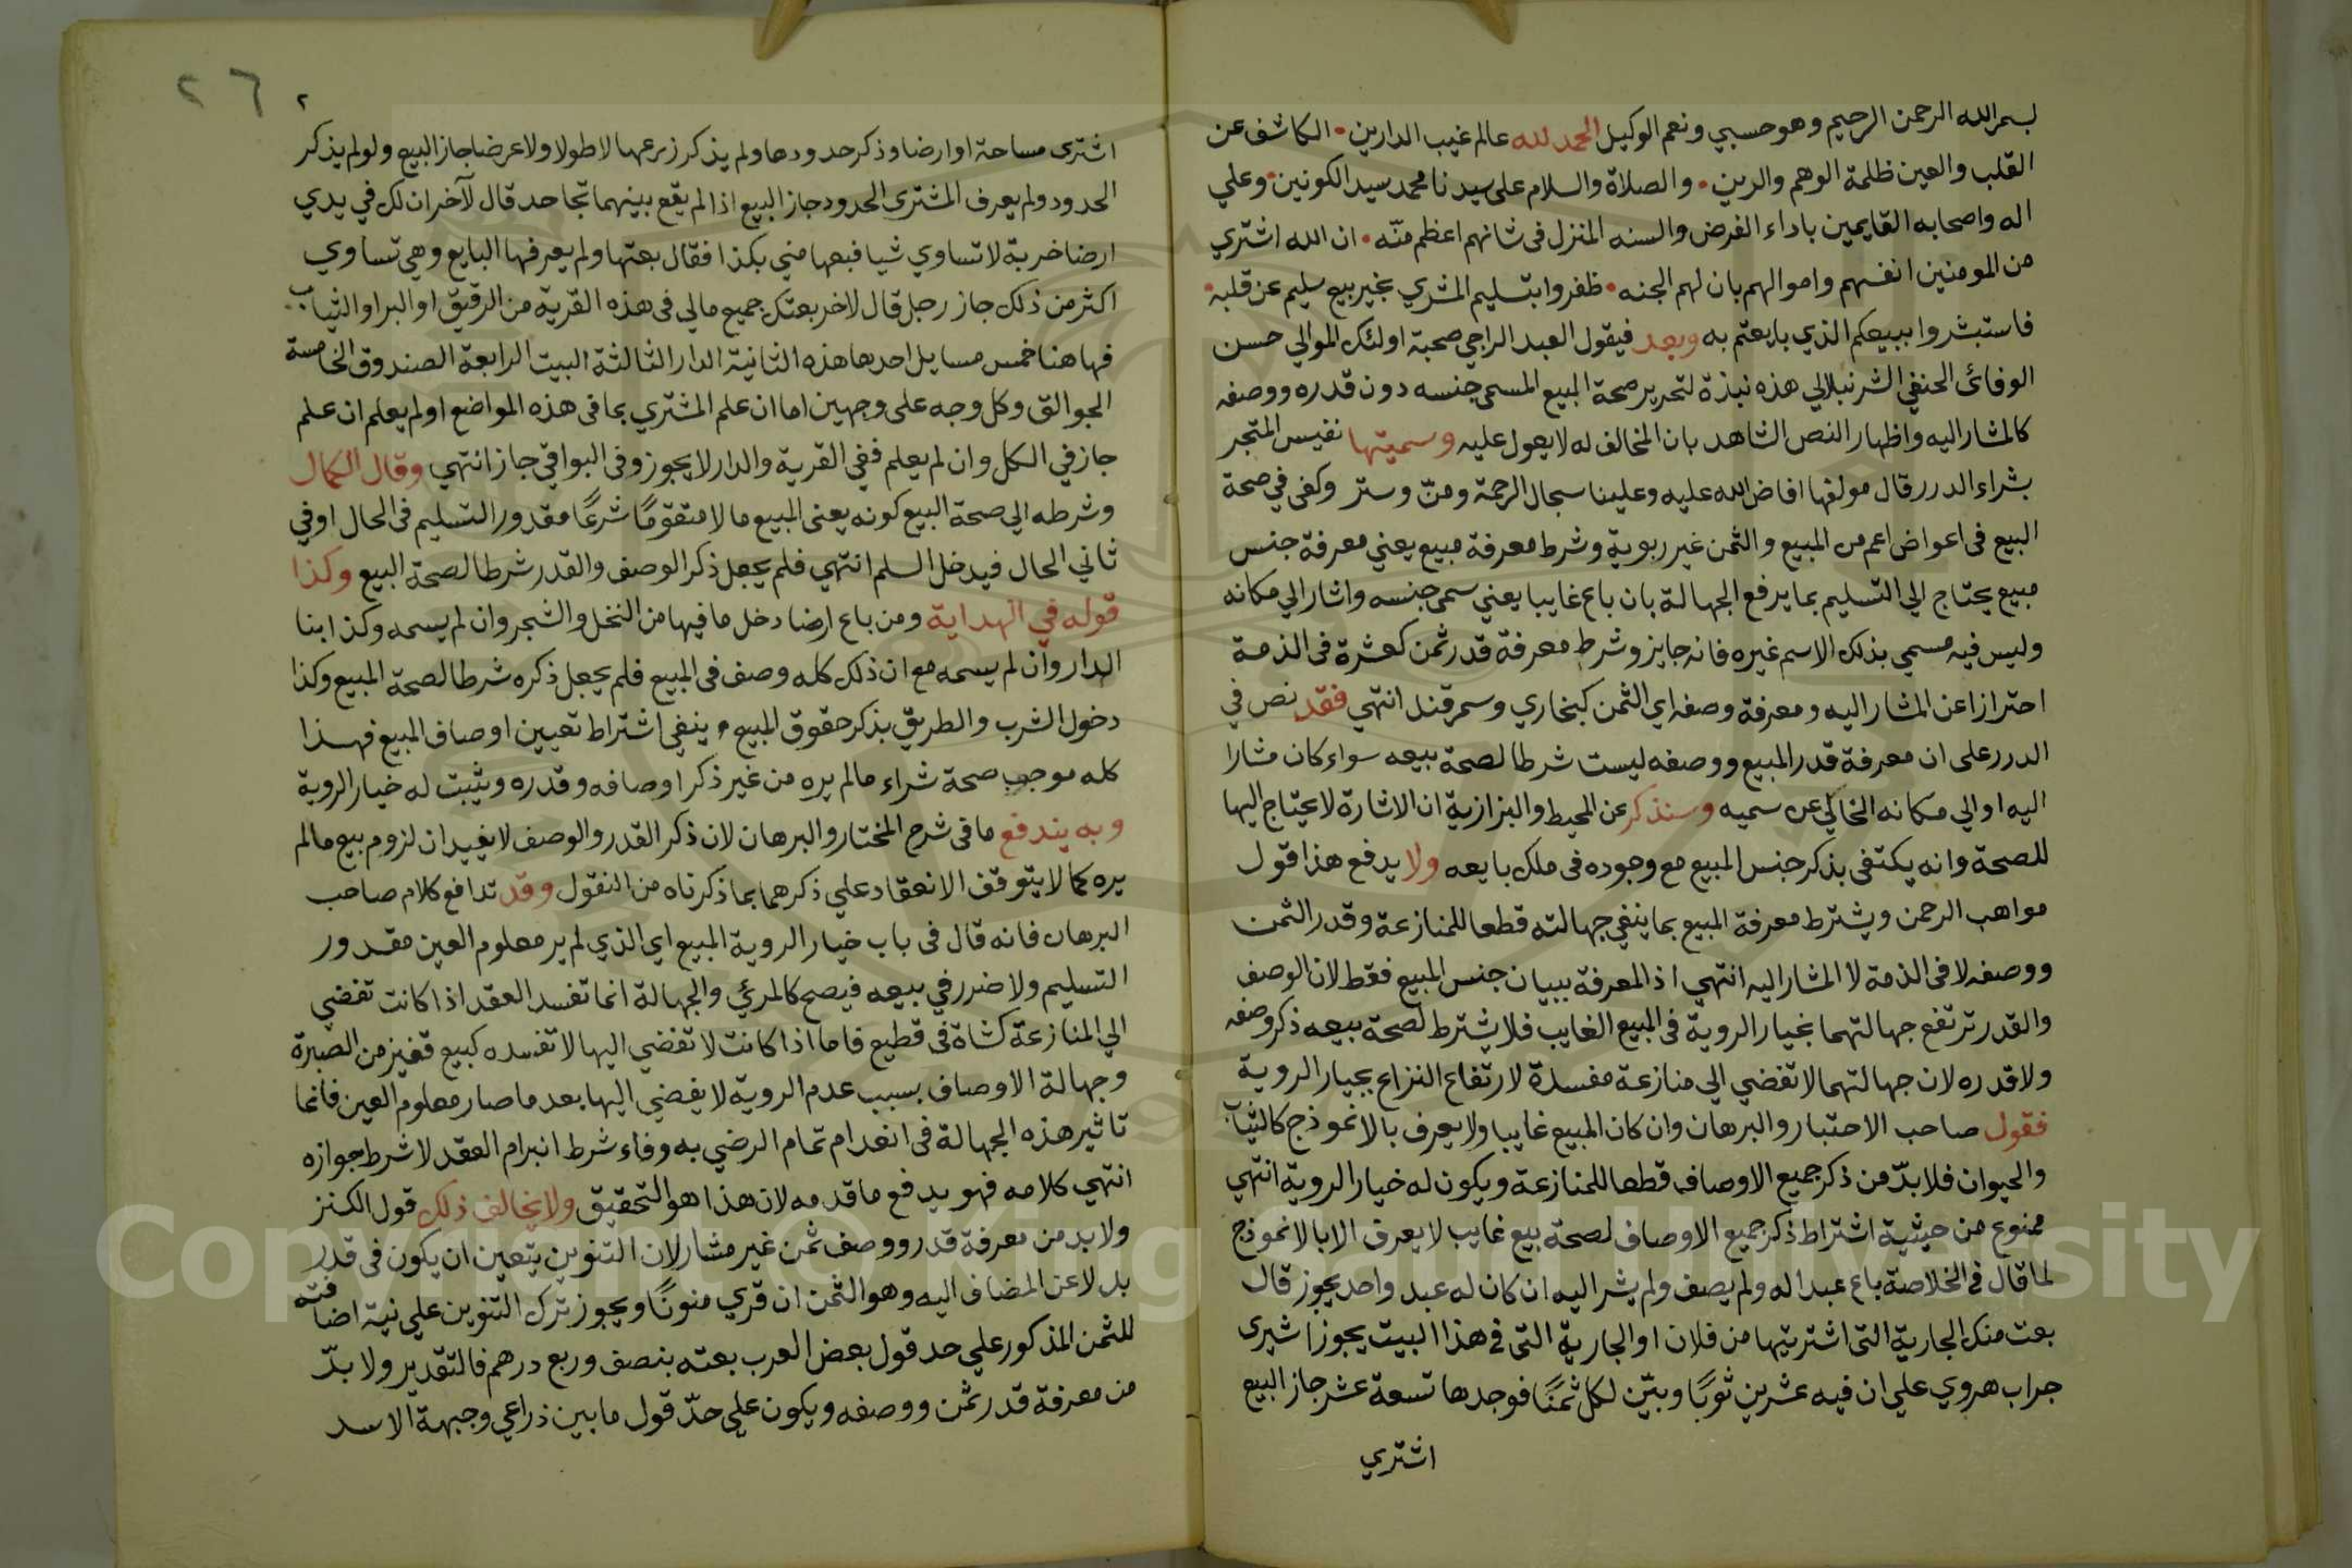 بسم الله الرحمن الرحيم وهو حسبي ونعم الوكيل الحمد لله عالم غيب الدارين • الكاشف عن
القلب والعين ظلمة الوهم والرين • والصلاة والسلام على سيدنا محمد سيد الكونين • وعلي
اله واصحابه القايمين باداء الفرض والسنه المنزل في شانهم اعظم منّه • ان الله اشتري
من المومنين انفسهم واموالهم بان لهم الجنه • ظفروا بتسليم المشري بخير بيع سليم عن قلبه •
فاستبشروا ببيعكم الذي بايعتم به وبعد فيقول العبد الراجي صحبة اولئك الموالي حسن
الوفائ الحنفي الشرنبلالي هذه نبذة لتحرير صحة المبيع المسمى جنسه دون قدره ووصفه
كالمشار اليه واظهار النص الشاهد بان المخالف له لا يعول عليه وسميتها نفيس المتجر
بشراء الدرر قال مولفها افاض الله عليه وعلينا سجال الرحمة ومنّ وستر وكفى في صحة
البيع في اعواض اعم من المبيع والثمن غير ربوية وشرط معرفة مبيع يعني معرفة جنس
مبيع يحتاج الي التسليم بما يرفع الجهالة بان باع غايبا يعني سمى جنسه واشار الي مكانه
وليس فيه مسمي بذلك الاسم غيره فانه جايز وشرط معرفة قدر ثمن كعشرة في الذمة
احترازا عن المشار اليه ومعرفة وصفه اي الثمن كبخاري وسمرقند انتهي فقد نص في
الدرر على ان معرفة قدر المبيع ووصفه ليست شرطا لصحة بيعه سواء كان مشارا
اليه او الي مكانه الخالي عن سميه وسنذكر عن المحيط والبزازية ان الاشارة لا يحتاج اليها
للصحة وانه يكتفي بذكر جنس المبيع مع وجوده في ملك بايعه ولا يدفع هذا قول
مواهب الرحمن ويشترط معرفة المبيع بما ينفي جهالته قطعا للمنازعة وقدر الثمن
ووصفه لا في الذمة لا المشار اليه انتهي اذ المعرفة ببيان جنس المبيع فقط لان الوصف
والقدر ترتفع جهالتهما بخيار الروية في المبيع الغايب فلا يشترط لصحة بيعه ذكر وصفه
ولا قدره لان جهالتهما لا تفضي الي منازعة مفسدة لارتفاع النزاع بخيار الروية
فقول صاحب الاختيار والبرهان وان كان المبيع غايبا ولا يعرف بالانموذج كالثياب
والحيوان فلا بدّ من ذكر جميع الاوصاف قطعا للمنازعة ويكون له خيار الروية انتهي
ممنوع من حيثية اشتراط ذكر جميع الاوصاف لصحة بيع غايب لا يعرف الا بالانموذج
لما قال في الخلاصة باع عبدا له ولم يصف ولم يشر اليه ان كان له عبد واحد يجوز قال
بعت منك الجارية التى اشتريتها من فلان او الجارية التى في هذا البيت يجوز اشترى
جراب هروي علي ان فيه عشرين ثوبًا وبيّن لكل ثمنًا فوجدها تسعة عشر جاز البيع
اشتري
٢٦ ٢
اشترى مساحة او ارضا وذكر حدودها ولم يذكر زرعها لا طولا ولا عرضا جاز البيع ولو لم يذكر
الحدود ولم يعرف المشترى الحدود جاز البيع اذا لم يقع بينهما تجاحد قال لآخر ان لك في يدي
ارضا خربة لا تساوي شيا فبعها مني بكذا فقال بعتها ولم يعرفها البايع وهي تساوي
اكثر من ذلك جاز رجل قال لاخر بعتك جميع مالي في هذه القرية من الرقيق او البر او الثياب
فها هنا خمس مسايل احدها هذه الثانية الدار الثالثة البيت الرابعة الصندوق الخامسة
الجوالق وكل وجه على وجهين اما ان علم المشتري بما في هذه المواضع او لم يعلم ان علم
جاز في الكل وان لم يعلم ففي القرية والدار لا يجوز وفى البواقي جاز انتهي وقال الكمال
وشرطه الي صحة البيع كونه يعنى المبيع مالا متقومًا شرعًا مقدور التسليم في الحال او في
ثاني الحال فيدخل السلم انتهي فلم يجعل ذكر الوصف والقدر شرطا لصحة البيع وكذا
قوله في الهداية ومن باع ارضا دخل ما فيها من النخل والشجر وان لم يسمه وكذا بنا
الدار وان لم يسمه مع ان ذلك كله وصف في المبيع فلم يجعل ذكره شرطا لصحة المبيع وكذا
دخول الشرب والطريق بذكر حقوق المبيع ينفي اشتراط تعيين اوصاف المبيع فهذا
كله موجب صحة شراء مالم يره من غير ذكر اوصافه وقدره ويثبت له خيار الروية
وبه يندفع ما في شرح المختار والبرهان لان ذكر القدر والوصف لا يفيدان لزوم بيع مالم
يره كما لا يتوقف الانعقاد علي ذكرهما بما ذكرناه من النقول وقد تدافع كلام صاحب
البرهان فانه قال في باب خيار الروية المبيع اي الذي لم ير معلوم العين مقدور
التسليم ولا ضرر في بيعه فيصح كالمرئي والجهالة انما تفسد العقد اذا كانت تفضي
الي المنازعة كشاة في قطيع فاما اذا كانت لا تفضي اليها لا تفسده كبيع قفيز من الصبرة
وجهالة الاوصاف بسبب عدم الروية لا يفضي اليها بعد ما صار معلوم العين فانما
تاثير هذه الجهالة في انعدام تمام الرضي به وفاء شرط انبرام العقد لا شرط جوازه
انتهي كلامه فهو يدفع ما قدمه لان هذا هو التحقيق ولا يخالف ذلك قول الكنز
ولا بد من معرفة قدر ووصف ثمن غير مشار لان التنوين يتعين ان يكون في قدر
بدلا عن المضاف اليه وهو الثمن ان قري منونًا ويجوز ترك التنوين علي نية اضافته
للثمن المذكور علي حد قول بعض العرب بعته بنصف وربع درهم فالتقدير ولا بدّ
من معرفة قدر ثمن ووصفه ويكون علي حدّ قول ما بين ذراعي وجبهة الاسد
Copyright © King Saud University